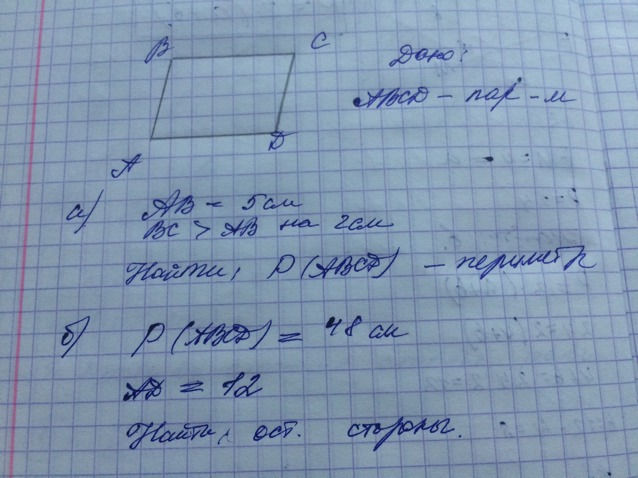 B
C
Дано:
ABCD - пар-м
A
D
а) AB = 5 см
BC > AB на 2 см
Найти, P (ABCD) - периметр
б) P (ABCD) = 48 см
AD = 12
Найти, ост. стороны.